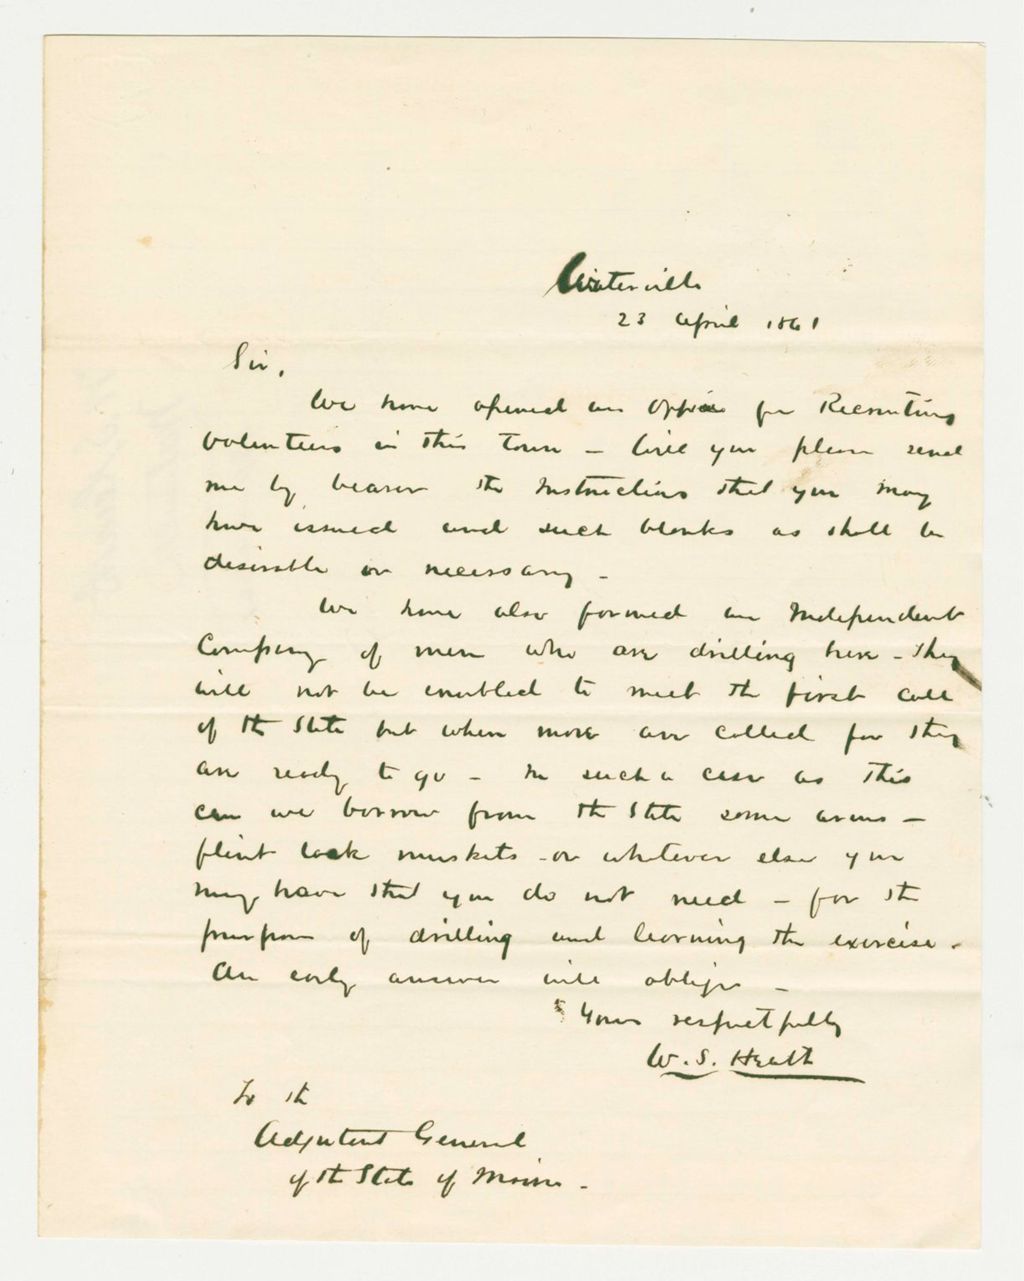 Waterville
23 April 1861
Sir,
We have opened an office for Recruiting
volunteers in this town – Will you please send
me by bearer the Instructions that you may
have issued and such blanks as shall be
desirable or necessary –
We have also formed an Independent
Company of men who are drilling here – They
will not be enabled to meet the first call
of the State but when more are called for they
are ready to go – In such a case as this
can we borrow from the State some arms –
flint lock muskets – or whatever else you
may have that you do not need – for the
purpose of drilling and learning the exercise –
An early answer will oblige –
Yours respectfully
W. S. Heath
To the
Adjutant General
of the State of Maine –